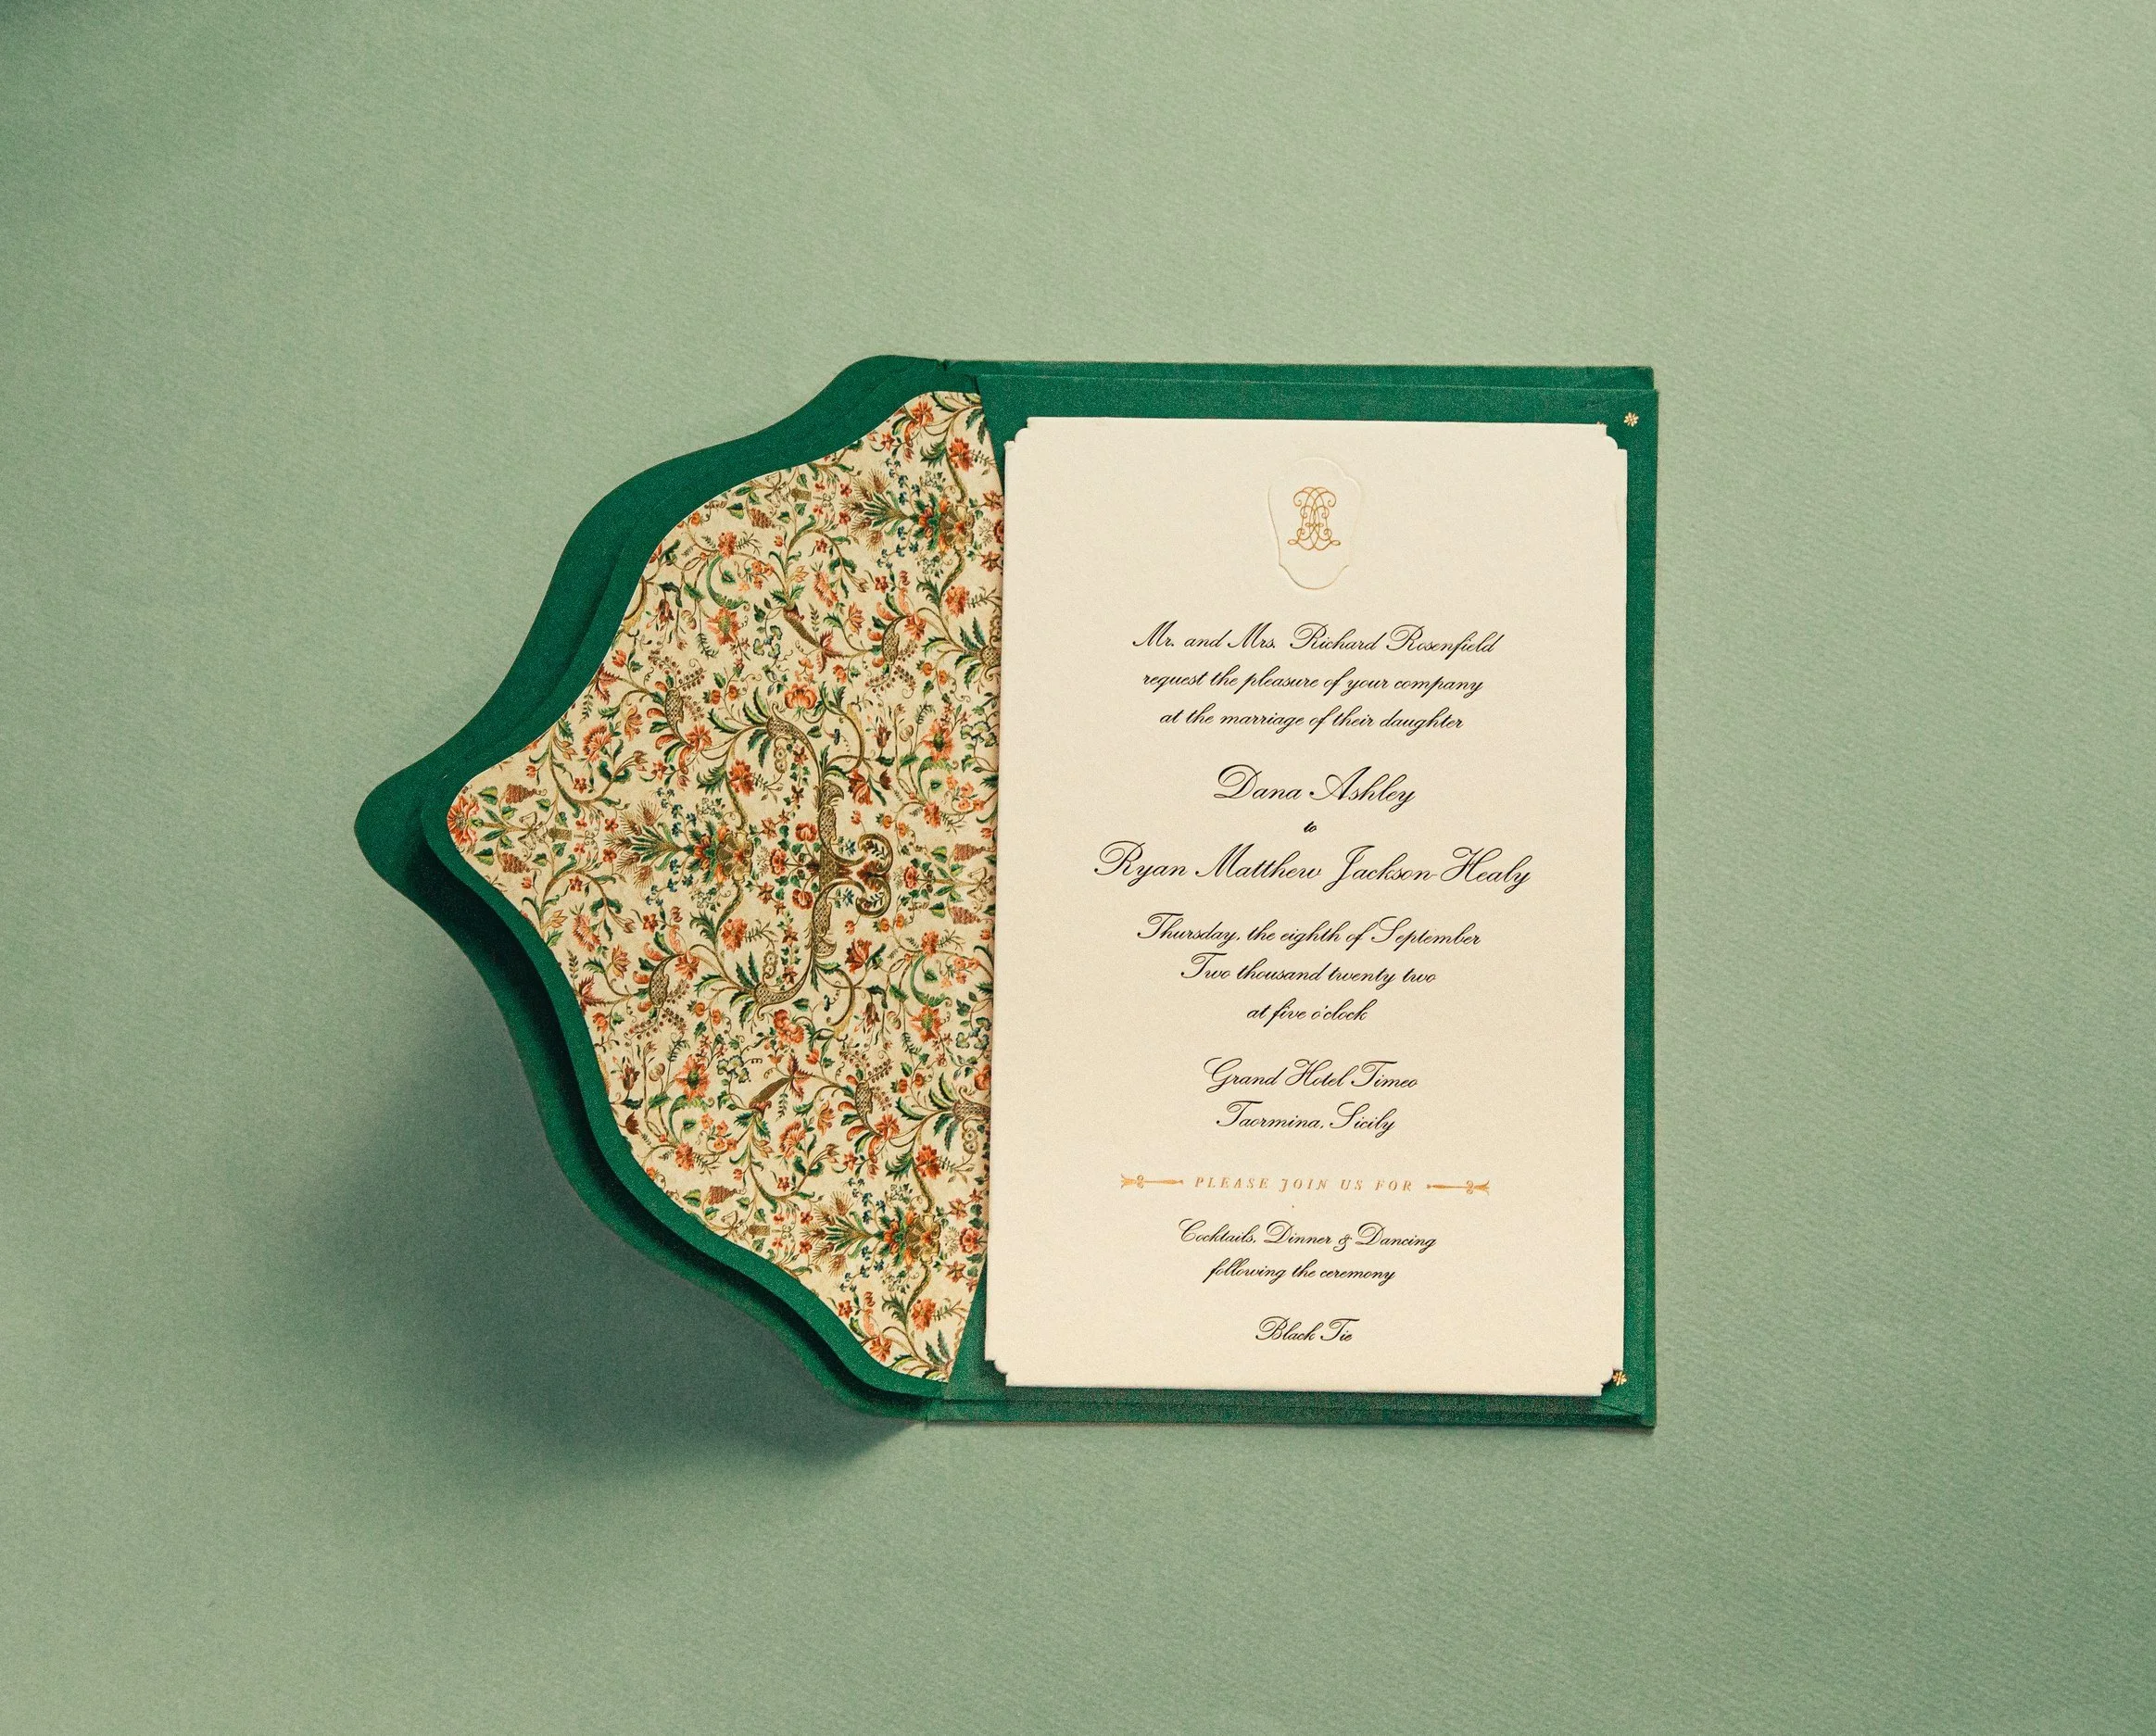 Mr. and Mrs. Richard Rosenfield
request the pleasure of your company
at the marriage of their daughter
Dana Ashley
to
Ryan Matthew Jackson-Healy
Thursday, the eighth of September
Two thousand twenty two
at five o'clock
Grand Hotel Timeo
Taormina, Sicily
PLEASE JOIN US FOR
Cocktails, Dinner & Dancing
following the ceremony
Black Tie